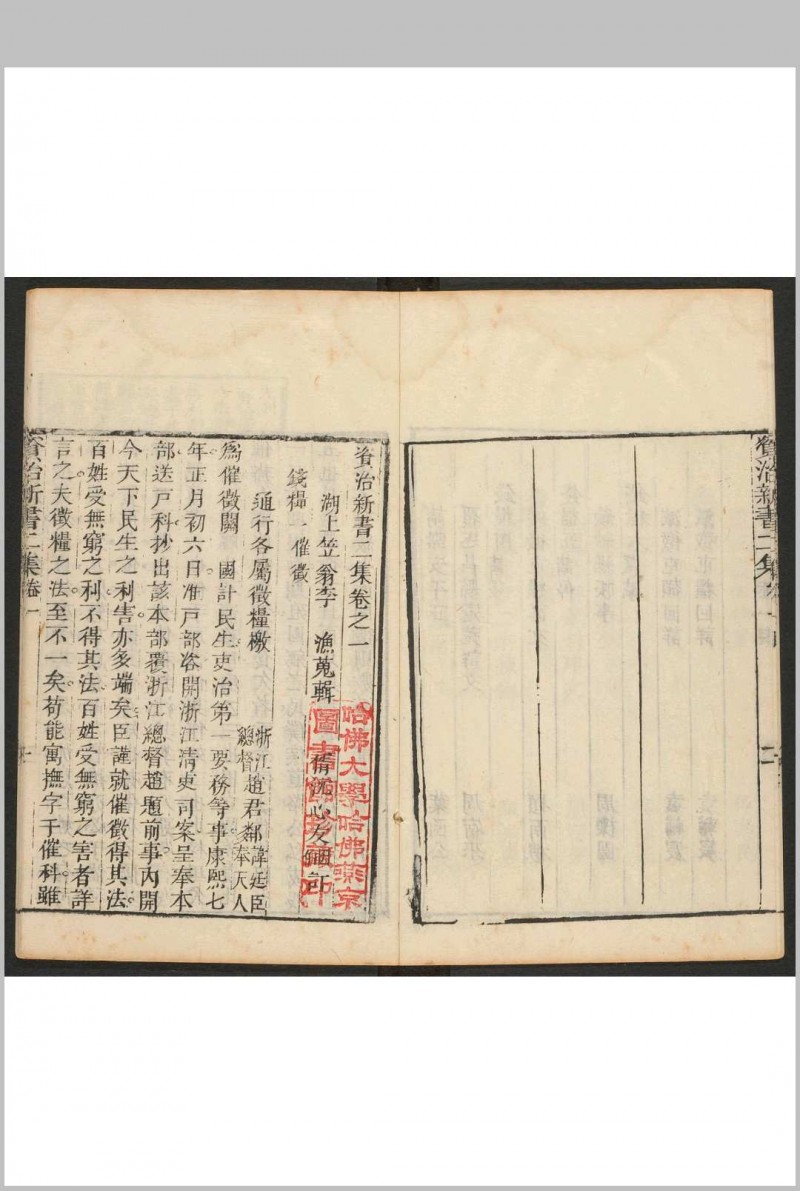 資治新書二集 卷一 目 二
資治新書二集卷之一
湖上笠翁李 漁蒐輯
壻沈心友 訂
錢糧一催徵
通行各屬徵糧檄 浙江總督趙君鄰諱廷臣奉天人
為催徵關 國計民生吏治第一要務等事康熙七
年正月初六日准戶部咨開浙江清吏司案呈奉本
部送戶科抄出該本部覆浙江總督趙題前事內開
今天下民生之利害亦多端矣臣謹就催徵得其法
百姓受無窮之利不得其法百姓受無窮之害者詳
言之夫徵糧之法至不一矣苟能寓撫字于催科雖
資治新書二集 卷一 一
哈佛大學哈佛燕京
圖書館珍藏印